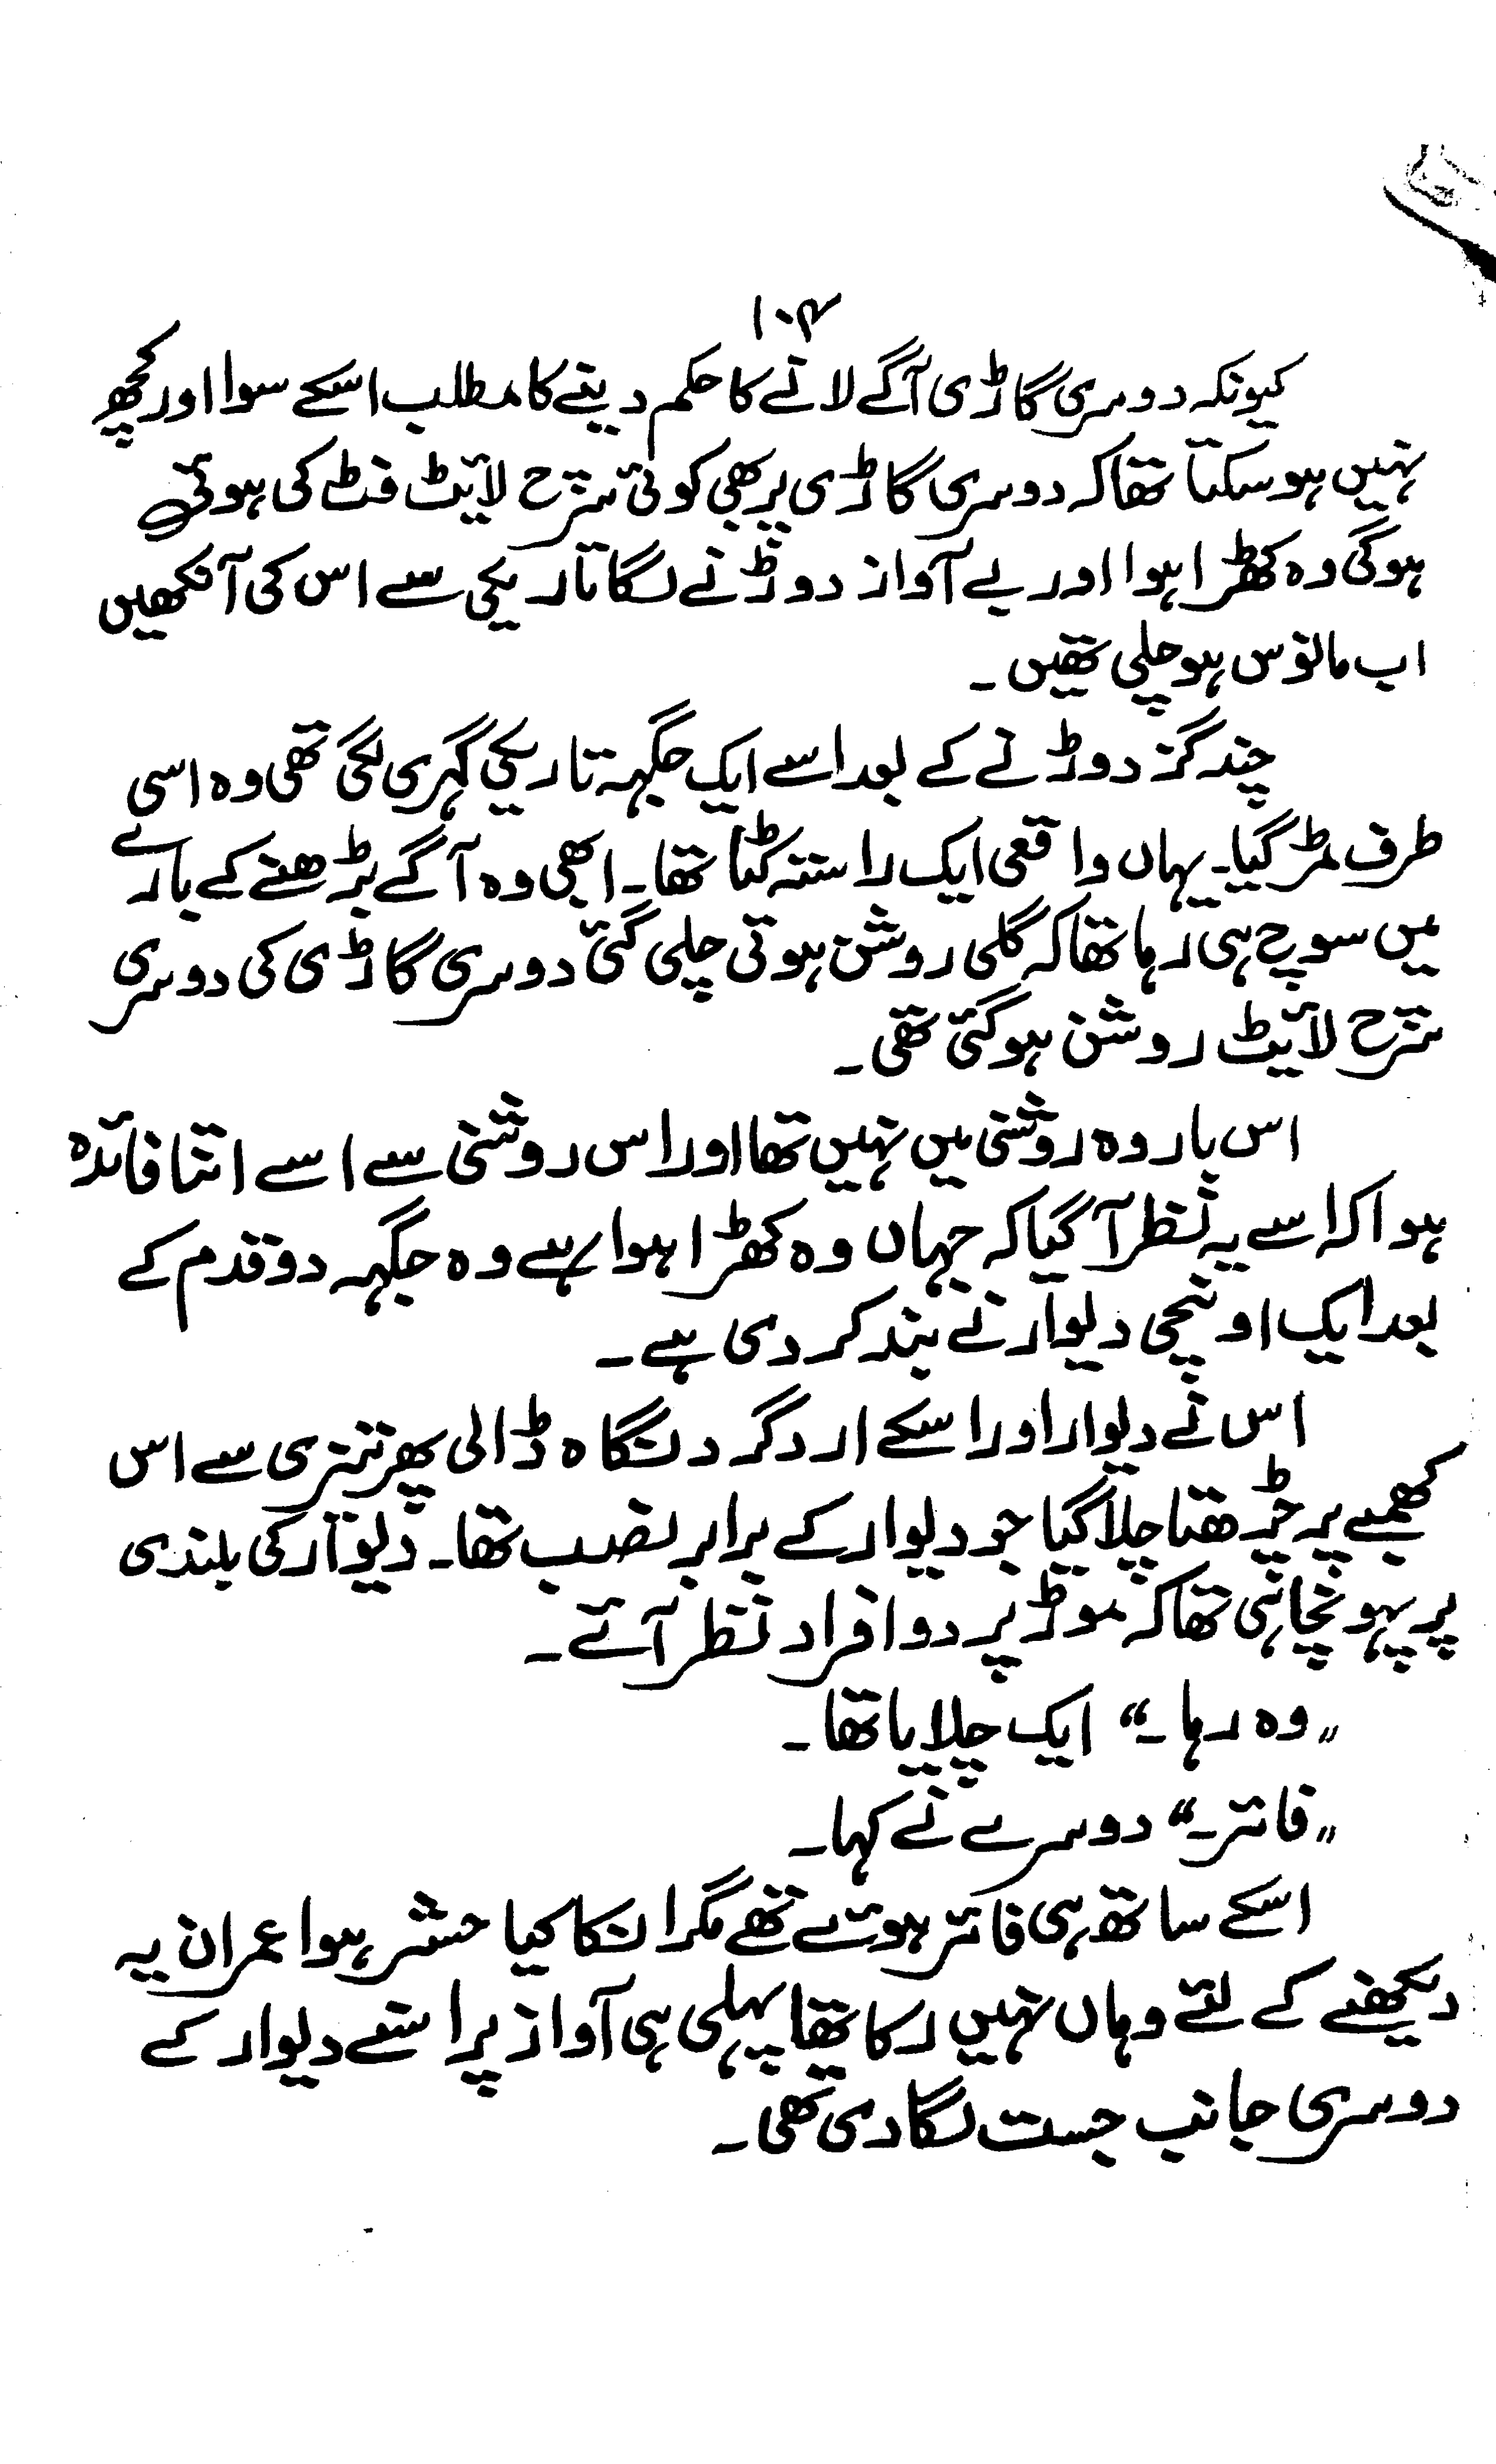 ۱۰۴
کیونکہ دوسری گاڑی آگے لانے کا حکم دینے کا مطلب اسکے سوا اور کچھ
نہیں ہو سکتا تھا کہ دوسری گاڑی پر بھی کوئی سرچ لائیٹ فٹ کی ہوئی
ہوگی وہ کھڑا ہوا اور بے آواز دوڑنے لگا تاریکی سے اس کی آنکھیں
اب مانوس ہو چلی تھیں ۔
چند گز دوڑنے کے بعد اسے ایک جگہہ تاریکی گہری لگی تھی وہ اسی
طرف مڑ گیا۔ یہاں واقعی ایک راستہ کٹتا تھا۔ ابھی وہ آگے بڑھنے کے بارے
میں سوچ ہی رہا تھا کہ گلی روشن ہوتی چلی گئی دوسری گاڑی کی دوسری
سرچ لائیٹ روشن ہو گئی تھی ۔
اس بار وہ روشنی میں نہیں تھا اور اس روشنی سے اسے اتنا فائدہ
ہوا کہ اسے یہ نظر آ گیا کہ جہاں وہ کھڑا ہوا ہے وہ جگہہ دو قدم کے
بعد ایک اونچی دیوار نے بند کر دی ہے ۔
اس نے دیوار اور اسکے ارد گرد نگاہ ڈالی پھر تیزی سے اس
کھمبے پر چڑھتا چلا گیا جو دیوار کے برابر نصب تھا۔ دیوار کی بلندی
پر پہونچا ہی تھا کہ موڑ پر دو افراد نظر آئے ۔
”وہ رہا ۔“ ایک چلایا تھا ۔
”فائر ۔“ دوسرے نے کہا ۔
اسکے ساتھ ہی فائر ہوئے تھے مگر انکا کیا حشر ہوا عمران یہ
دیکھنے کے لئے وہاں نہیں رکا تھا پہلی ہی آواز پر اسنے دیوار کے
دوسری جانب جست لگا دی تھی ۔